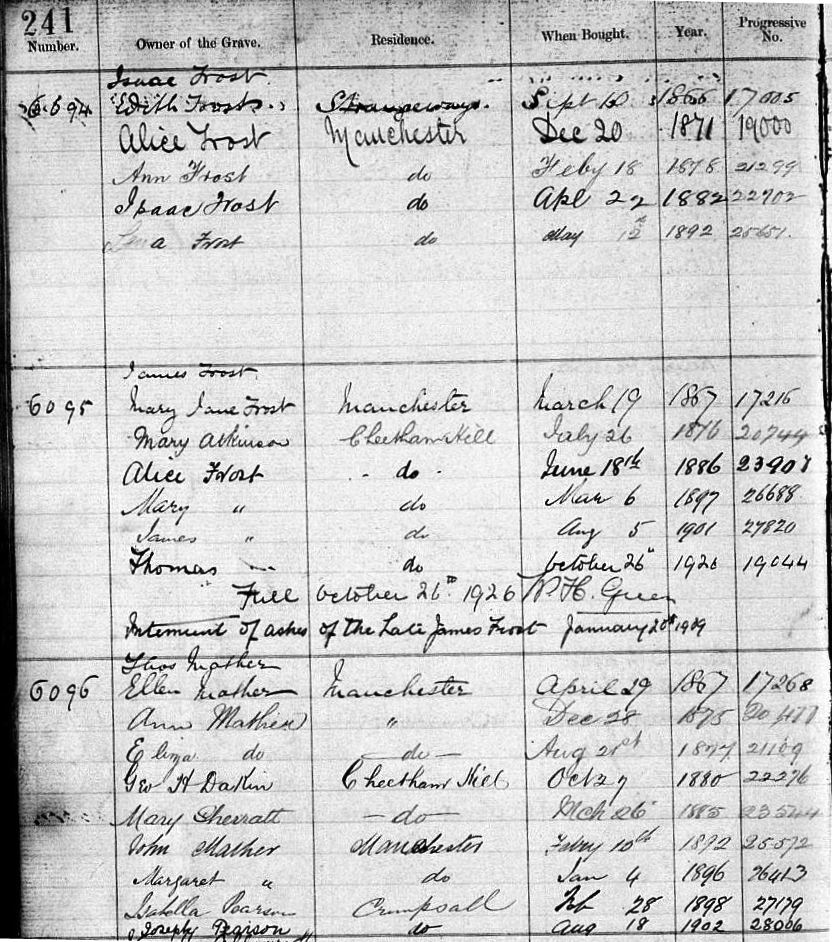 241
Number. Owner of the Grave. Residence. When Bought. Year. Progressive No.
Isaac Frost
6094 Edith Frost Strangeways. Sept 10 1866 17005
Alice Frost Manchester Dec 20 1871 19000
Ann Frost do Feby 18 1878 21299
Isaac Frost do Apl 22 1882 22902
Frost do May 12th 1892 25651.
James Frost
6095 Mary Jane Frost Manchester March 19 1867 17216
Mary Atkinson Cheetham Hill July 26 1876 20744
Alice Frost - do - June 18th 1886 23907
Mary " do Mar 6 1897 26688
James " do Aug 5 1901 27820
Thomas do October 26 1926 19044
Full October 26th 1926 W. H. Green
Interment of ashes of the Late James Frost January 20th 1909
Thos Mather
6096 Ellen Mather Manchester April 29 1867 17268
Ann Mather " Dec 28 1875
Eliza do - do - Aug 21st 1877 21109
Geo H Dakin Cheetham Hill Oct 27 1880 22276
Mary Sherratt - do - Mch 26 1885 23544
John Mather Manchester Feby 10th 1892 25572
Margaret " do Jan 4 1896 26413
Isabella Pearson Crumpsall Feb 28 1898 27179
Joseph Pearson do Aug 18 1902 28006